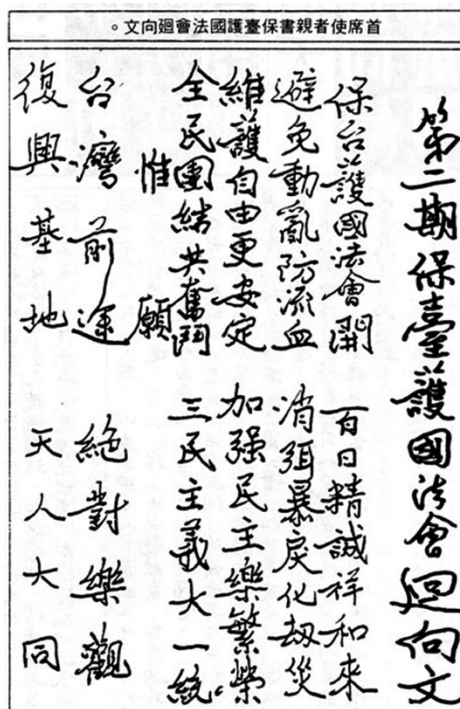 首席使者親書保臺護國法會廻向文。
第二期保臺護國法會廻向文
保台護國法會開 百日精誠祥和來
避免動亂防流血 消弭暴戾化劫災
維護自由更安定 加強民主樂繁榮
全民團結共奮鬥 三民主義大一統。
惟願
台灣前途 絕對樂觀
復興基地 天人大同